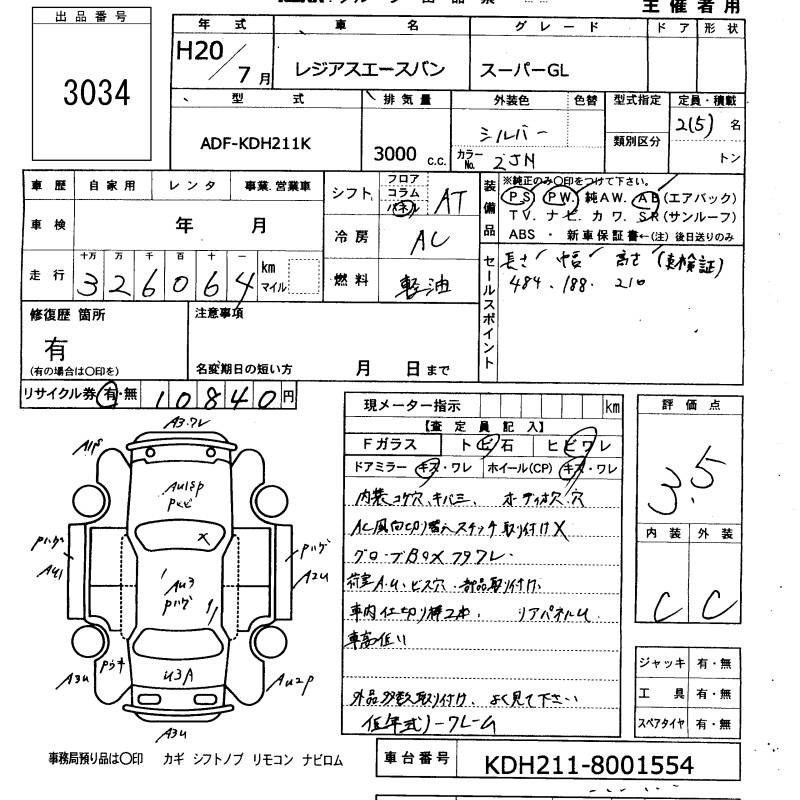 主催者用
出品番号
3034
年式 車名 グレード ドア 形状
H20/7月 レジアスエースバン スーパーGL
型式 排気量 外装色 色替 型式指定 定員・積載
ADF-KDH211K 3000 c.c. シルバー 類別区分 2(5) 名
カラーNo. 2JN トン
車歴 自家用 レンタ 事業.営業車
シフト フロア コラム パネル AT
装備品 ※純正のみ○印をつけて下さい。
PS PW. 純AW. AB(エアバック)
TV. ナビ カワ. SR(サンルーフ)
ABS ・ 新車保証書←(注) 後日送りのみ
車検 年 月
冷房 AC
走行 十万 万 千 百 十 一 km マイル
326064
燃料 軽油
セールスポイント 長さ 幅 高さ (車検証)
484. 188. 210
修復歴 箇所
有
(有の場合は○印を)
注意事項
名変期日の短い方 月 日まで
リサイクル券 有・無 10840円
現メーター指示 km
【査定員記入】
Fガラス トビ石 ヒビワレ
ドアミラー キズ・ワレ ホイール(CP) キズ・ワレ
内装コゲ穴、キバミ、ボディ穴.穴
AC風向切り替えスイッチ取り付けX
グローブBOXフタワレ
荷室A.U.ビス穴.部品取り付け.
車内仕切り棒2本. リアパネルU
車高低い
外品多数取り付け、よく見て下さい
低年式ノークレーム
評価点
3.5
内装 外装
C C
ジャッキ 有・無
工具 有・無
スペアタイヤ 有・無
A3.ワレ
AU18P
Pトビ
X
Pハゲ
AU1
Pハゲ
A2U
AU3
Pハゲ
U3A
A3U
PウキAU2P
A3U
事務局預り品は○印 カギ シフトノブ リモコン ナビロム
車台番号 KDH211-8001554